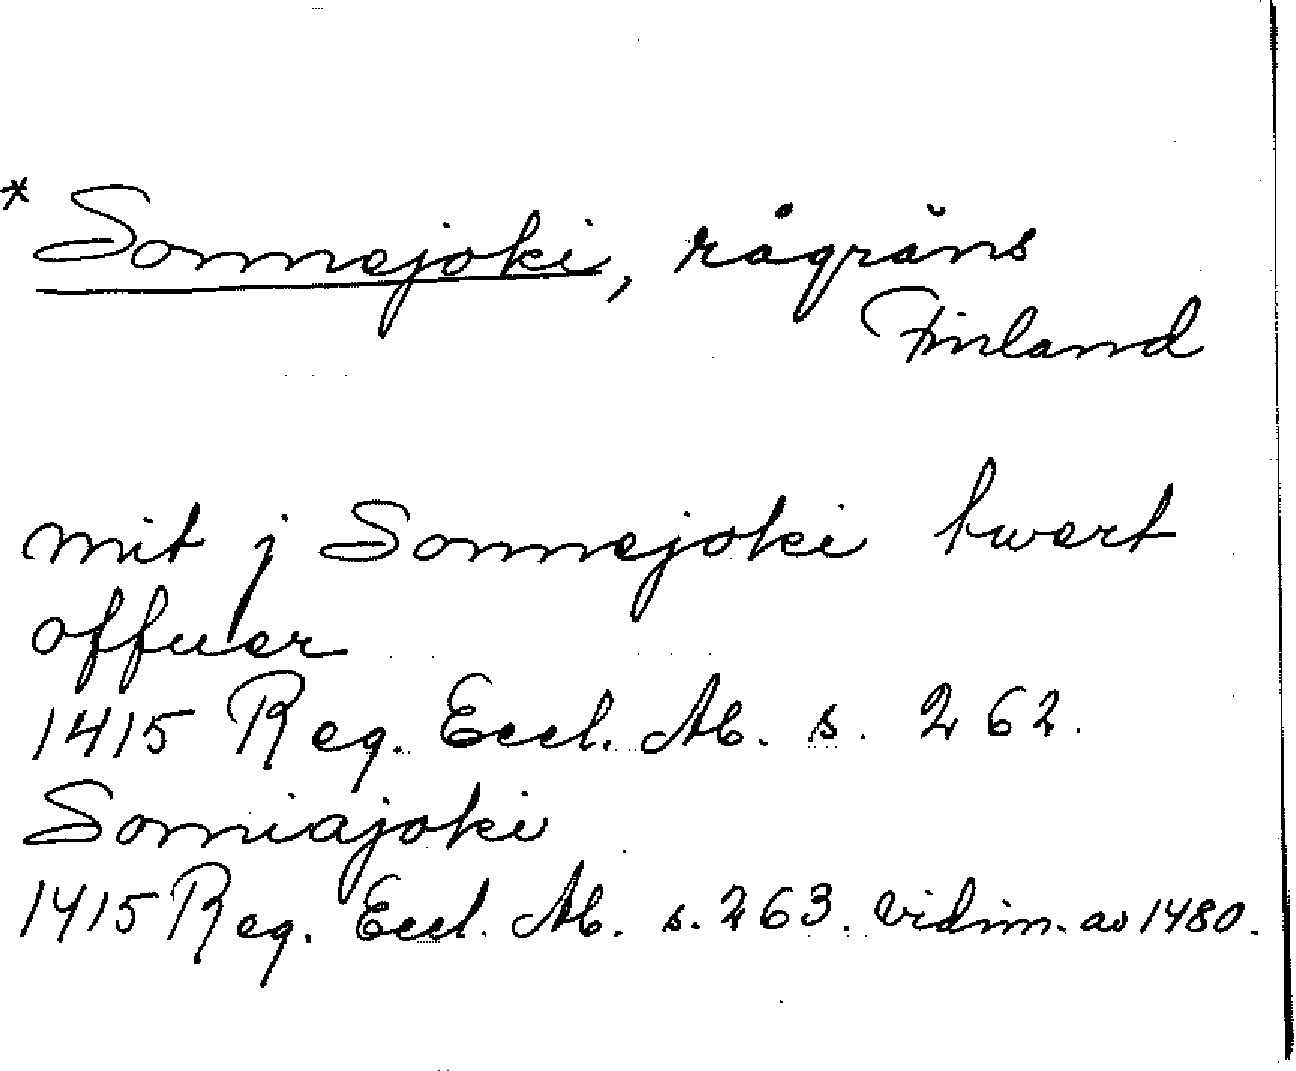 * Sommejoki, rågräns
Finland
mit j Sommejoki twert
offuer
1415 Reg. Eccl. Ab. s. 262.
Somiajoki
1415 Reg. Eccl. Ab. s. 263. vidim. av 1480.